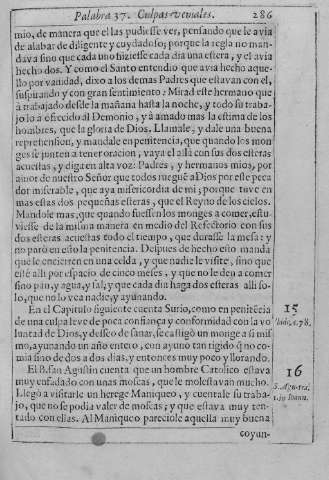 Palabra 37. Culpas veniales. 286
mio, de manera que el las pudiesse ver, pensando que le avia
de alabar de diligente y cuydadoso; porque la regla no man-
dava sino que cada uno hiziesse cada dia una estera, y el avia
hecho dos. Y como el Santo entendio que avia hecho aque-
llo por vanidad, dixo a los demas Padres que estavan con el,
suspirando y con gran sentimiento: Mirad este hermano que
à trabajado desde la mañana hasta la noche, y todo su traba-
jo lo à ofrecido al Demonio, y à amado mas la estima de los
hombres, que la gloria de Dios. Llamale, y dale una buena
reprehension, y mandale en penitencia, que quando los mon-
ges se junten a tener oracion, vaya el allà con sus dos esteras
acuestas, y diga en alta voz: Padres, y hermanos mios, por
amor de nuestro Señor que todos rueguē a Dios por este peca
dor miserable, que aya misericordia de mi; porque tuve en
mas estas dos pequeñas esteras, que el Reyno de los cielos.
Mandole mas, que quando fuessen los monges a comer, estu-
viesse de la misma manera en medio del Refectorio con sus
dos esteras acuestas todo el tiempo, que durasse la mesa: y
no parò en esto la penitencia. Despues de hecho esto manda
que le encierren en una celda, y que nadie le visite, sino que
estè alli por espacio de cinco meses, y que no le den a comer
sino pan, y agua, y sal; y que cada dia haga dos esteras alli so-
lo, que no lo vea nadie, y ayunando.
En el Capitulo siguiente cuenta Surio, como en penitēcia
de una culpa leve de poca confiança y conformidad con la vo
luntad de Dios, y desseo de sanar, se castigò un monge a si mis-
mo, ayunando un año entero, con ayuno tan rigido q̄ no co-
mia sino de dos a dos dias, y entonces muy poco y llorando.
15
c. 78.
El B. san Agustin cuenta que un hombre Catolico estava
muy enfadado con unas moscas, que le molestavan mucho.
Llegò a visitarle un herege Maniqueo, y cuentale su traba-
jo, que no se podia valer de moscas; y que estava muy ten-
tado con ellas. Al Maniqueo pareciole aquella muy buena
16
S. Agustin,
Ioann.
coyun-